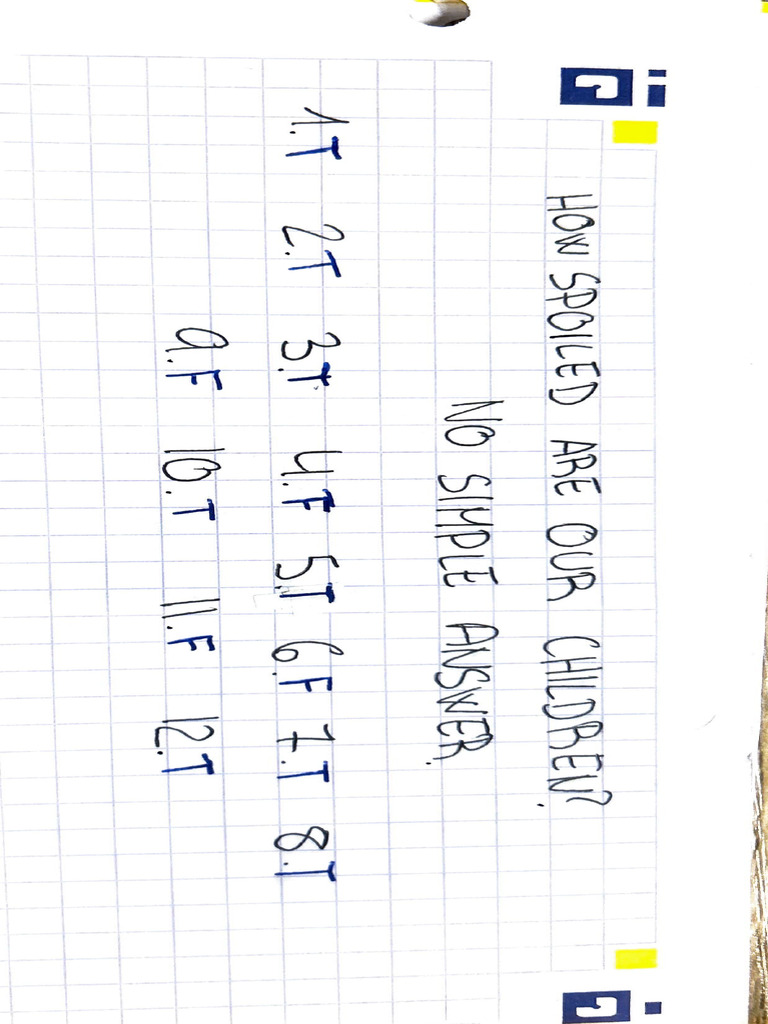 HOW SPOILED ARE OUR CHILDREN?
NO SIMPLE ANSWER.
1.T 2.T 3.T 4.F 5.T 6.F 7.T 8.T
9.F 10.T 11.F 12.T